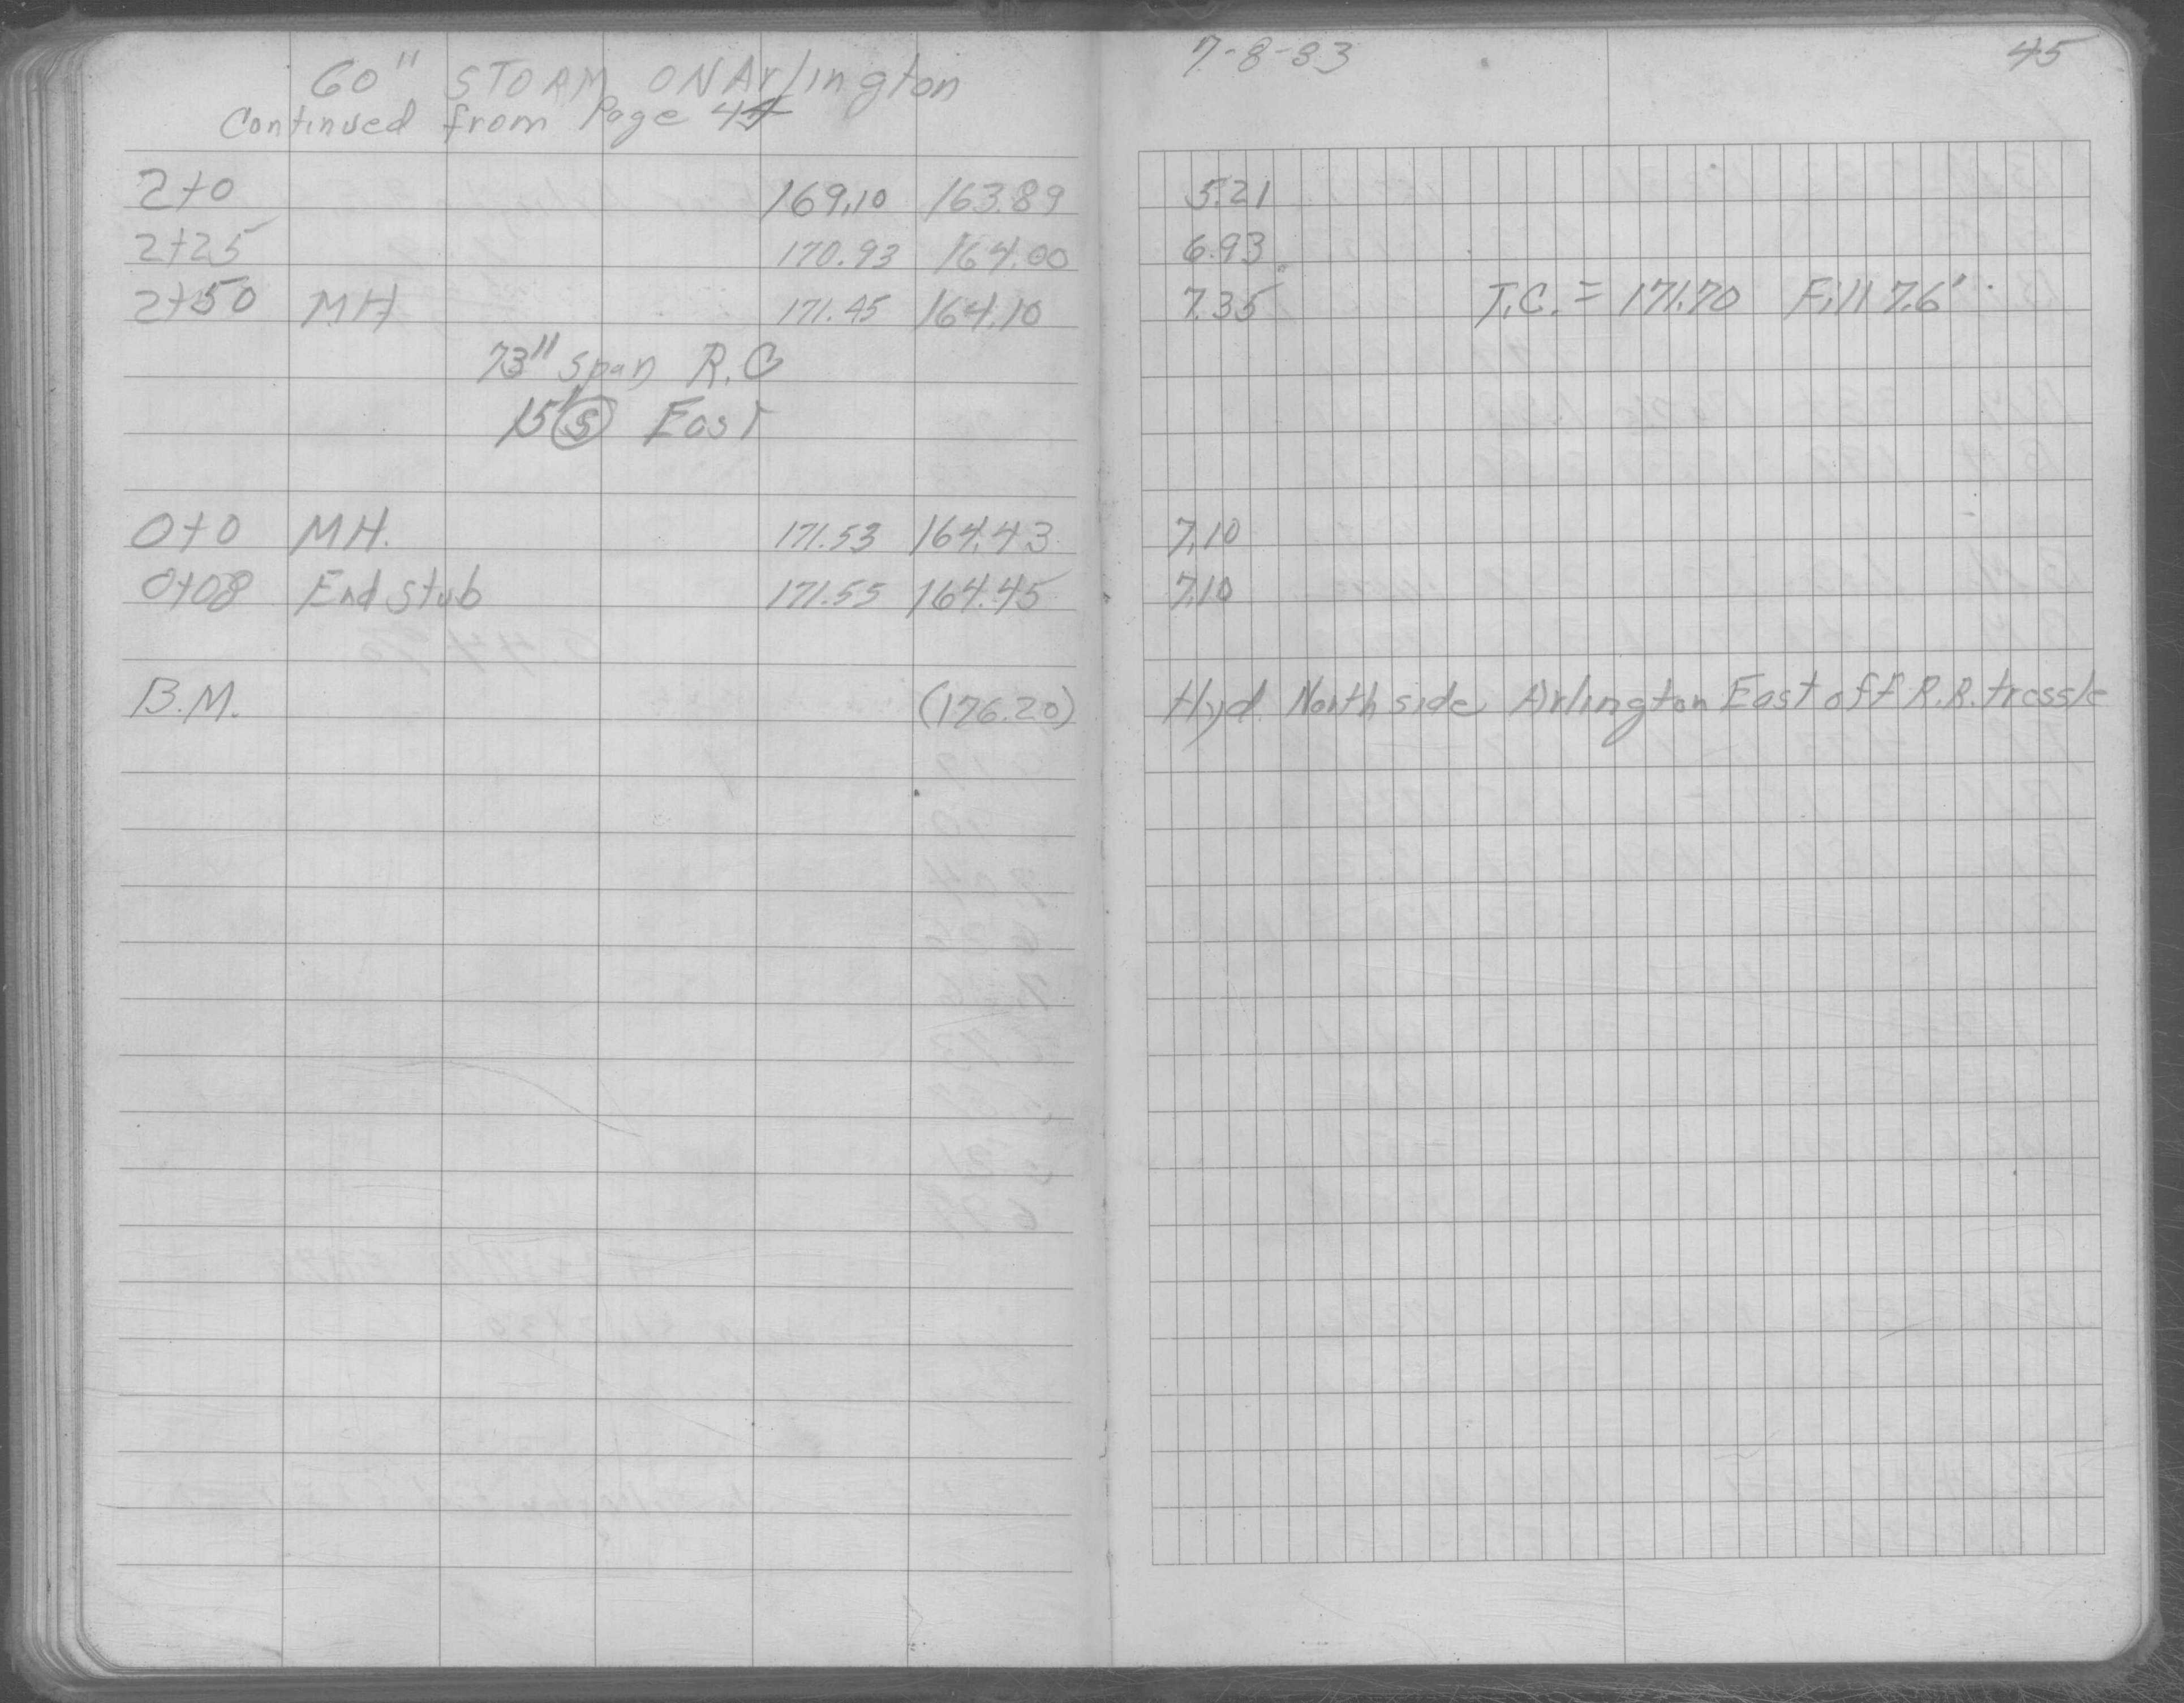 60" STORM ON Arlington
Continued from Page 44
2+0 169.10 163.89
2+25 170.93 164.00
2+50 MH 171.45 164.10
73" span R.C
15" (S) East
0+0 MH. 171.53 164.43
0+08 End stub 171.55 164.45
B.M. (176.20)
7-8-83 45
5.21
6.93
7.35 T.C. = 171.70 Fill 7.6'
7.10
7.10
Hyd. North side Arlington East off R.R. tressle